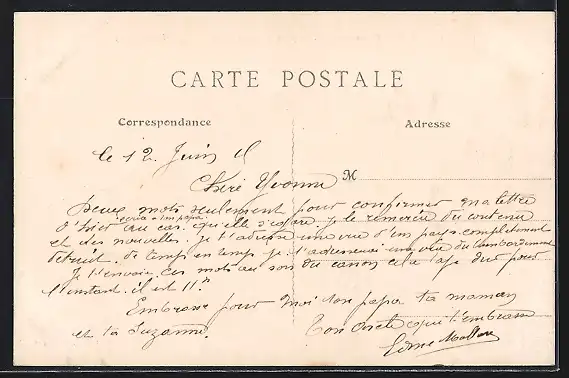 CARTE POSTALE
Correspondance
Adresse
le 12 Juin
Chère Yvonne
M
Deux mots seulement pour confirmer ma lettre
écrite à ton papa
d'hier au cas qu'elle s'égare. Je le remercie du contenu
et des nouvelles. Je t'adresse une vue d'un pays complètement
détruit. de temps en temps je t'adresserai une vue du bombardement
Je t'envoie ces mots au son du canon cela tape dur pour
l'instant. il est 11h
Embrasse pour moi ton papa ta maman
et ta Suzanne.
Ton oncle qui t'embrasse